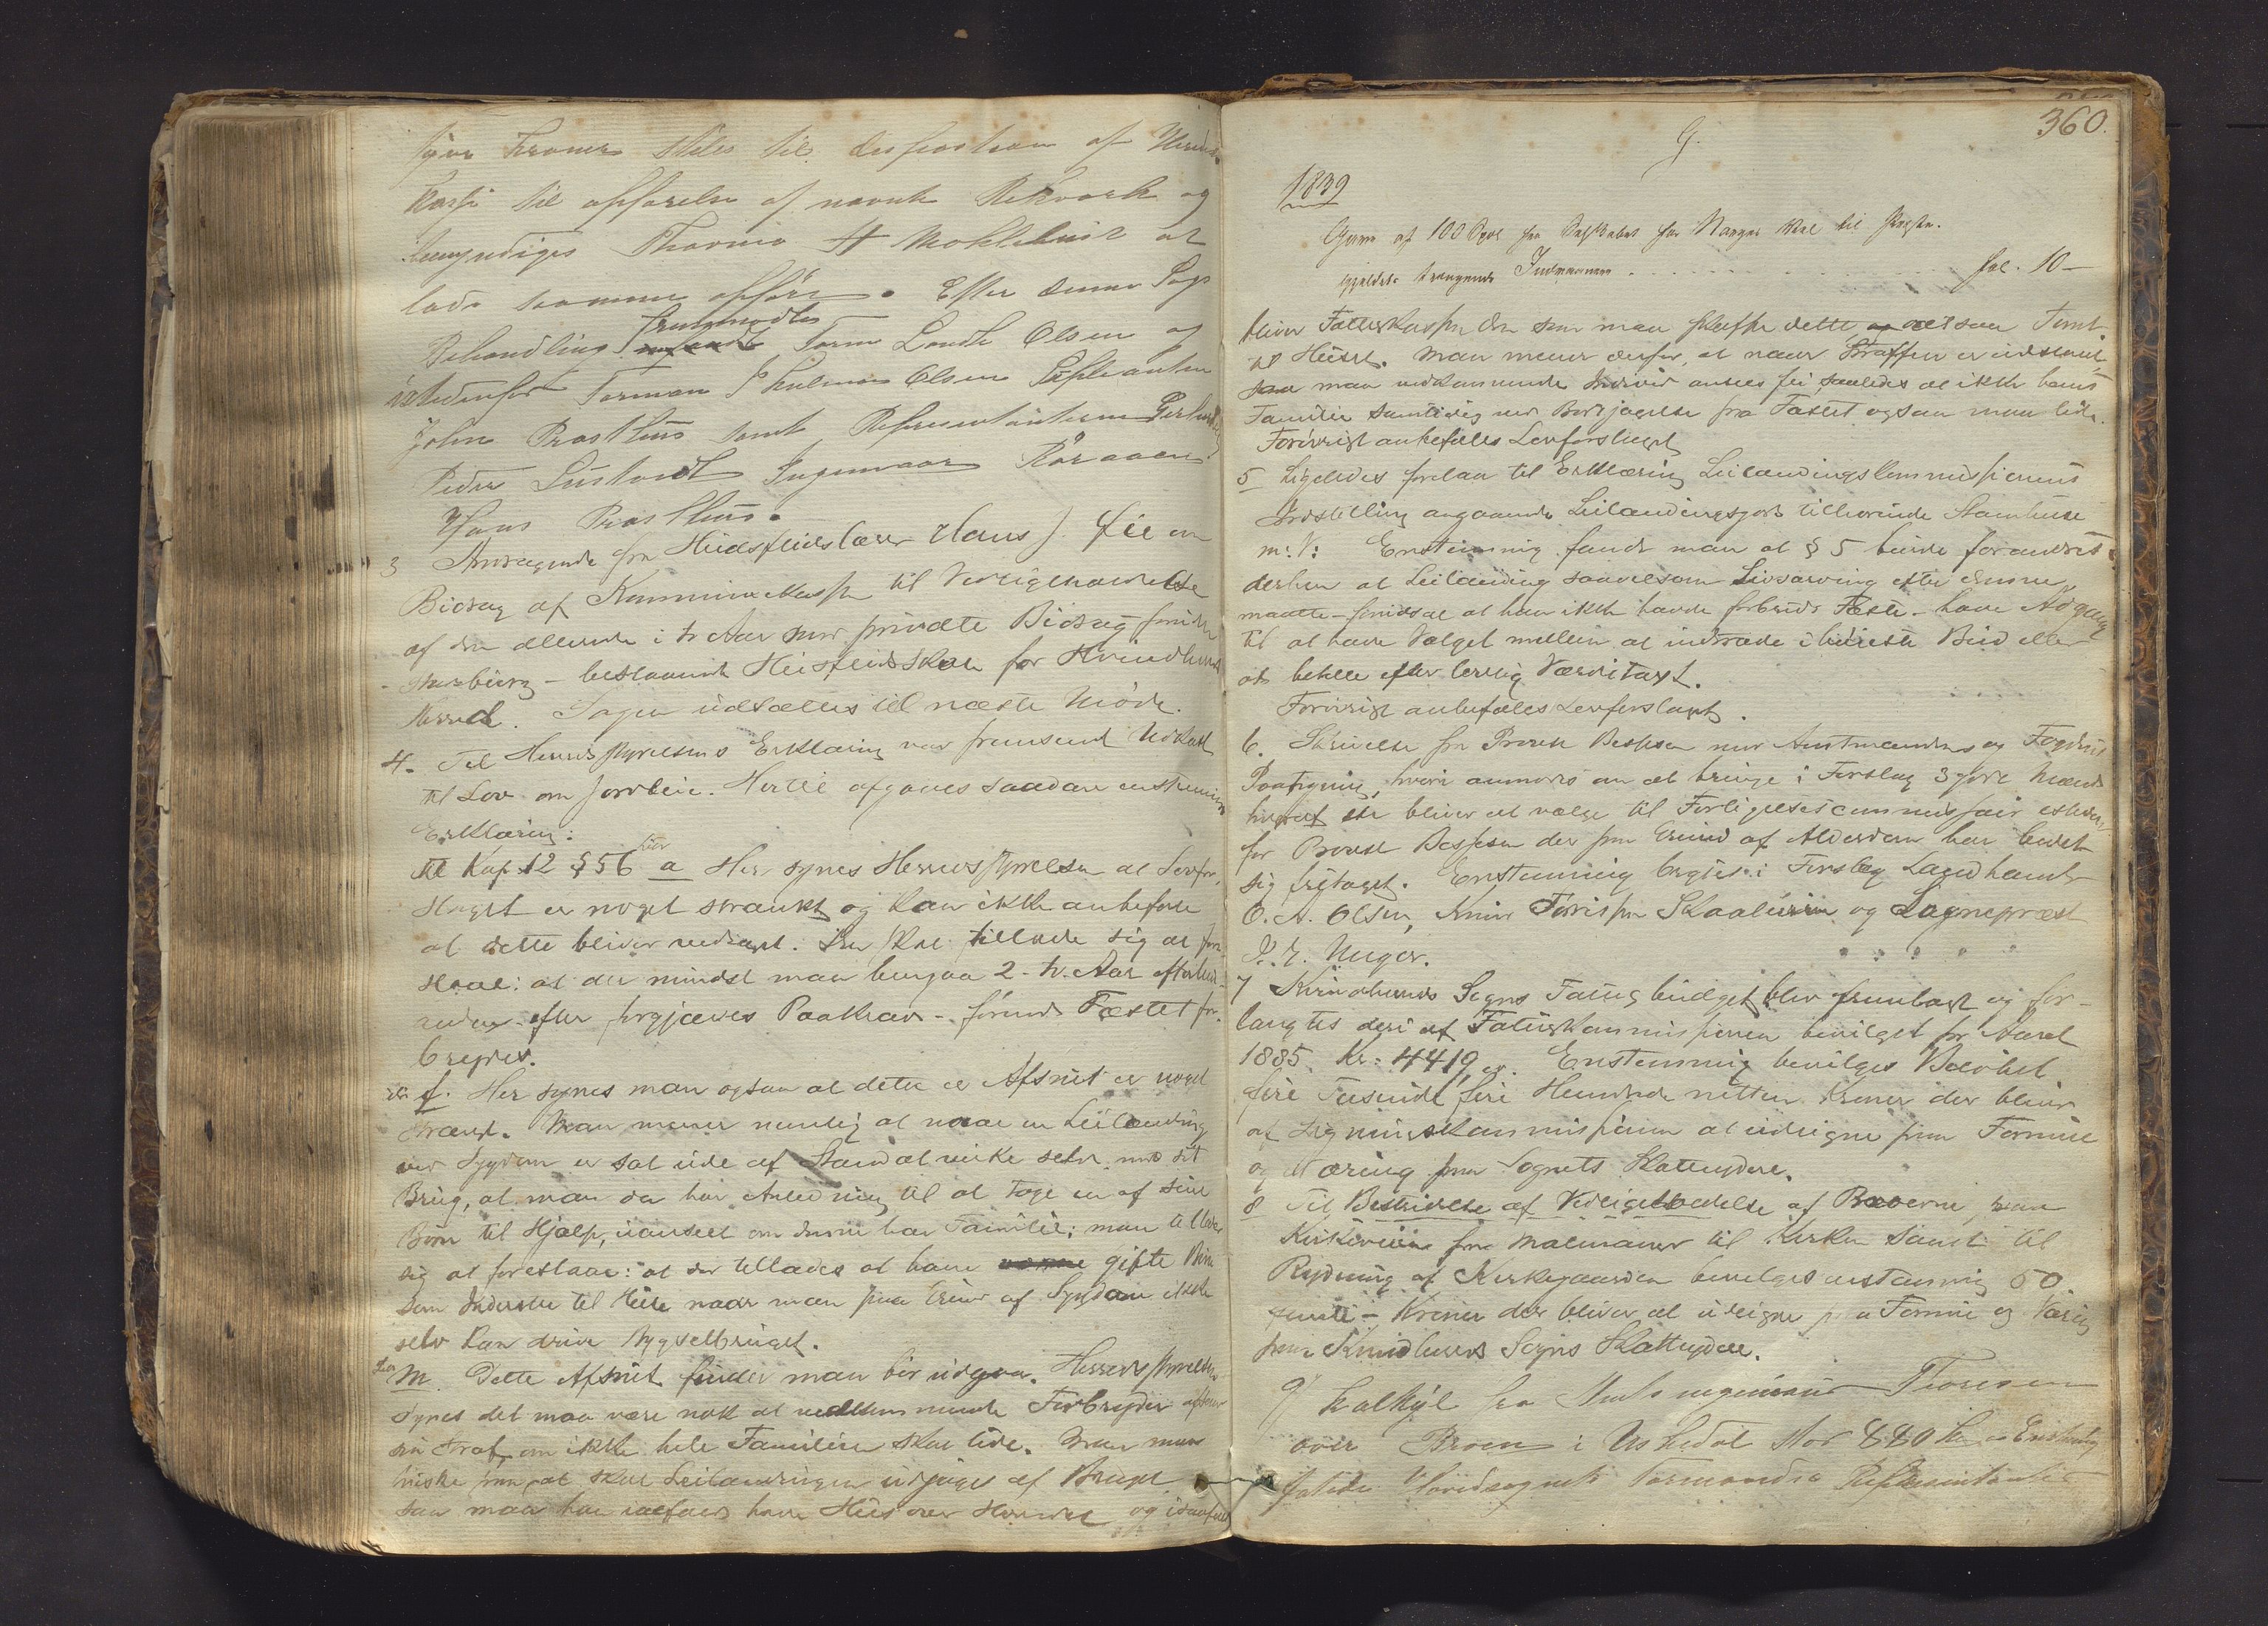 tyve Kroner stilles til disposition af Herreds
Kassen til opførelse af nævnte Rekværk og
bemyndiges Thormo H Moklebust at
lade samme opføre. Efter denne Sags
Behandling fremmødte Form Londt Olsen og
istedenfor Forman S Hulmen Olsen Suppleanten
John Præsthus samt Repræsentanterne
Peder Ingemaar Røraaen
Hans Præsthus.
3 Andragende fra Husflidslærer Claus J. Lie om
Bidrag af Kommunekassen til Vedligeholdelse
af den allerede i to Aar med private Bidrag
bestaaende Husflidsskole for Kvindherred
Herred. Sagen udsættes til næste Møde.
4. Til Herredsstyrelsens Erklæring var fremsendt Udkast
til Lov om Jordleie. Hertil afgaves saadan enstemmig
Erklæring:
Til Kap 12 § 56 litr a Her synes Herredsstyrelsen at Lovfor-
slaget er noget strænkt og kan ikke anbefale
at dette bliver vedtaget. Den skal tillade sig at fore-
slaae: at der mindst maa hengaa 2 - to Aar efterhin-
anden - efter forgjæves Paakrav - førend Fæstet for-
brydes.
litr f. Her synes man ogsaa at dette er Afsnit er noget
strængt. Man mener nemlig at naar en Leilænding
ved Sygdom er sat ude af Stand at virke selv med sit
Brug, at man da har Anledning til at tage en af sine
Børn til Hjælp, uanseet om denne har Familie; man tillader
sig at foreslaae: at der tillades at have gifte Børn
som Inderster til Huse naar man paa Grund af Sygdom ikke
selv kan drive Bygselbruget.
litr m Dette Afsnit finder man bør udgaa. Herredsstyrelsen
synes det maa være nok at vedkommende Forbryder afsoner
sin Straf, om ikke hele Familien skal lide. Man maa
huske paa, at skal Leilændingen udjages af Bruget
saa maa han ialfald have Huus over Hovedet og isaafald
360.
G.
1839
Gave af 100 Spd fra Selskabet for Norges Vel til Præste-
gjældets trængende Indvaanere . . . . . . . . . . fol. 10 -
bliver Fattigkassen den som maa skaffe dette og saa Tomt
til Huset. Man mener derfor, at naar Straffen er udstaaet,
maa vedkommende Individ ansees fri, saaledes at ikke hans
Familie samtidig ved Bortjagelse fra Fæstet ogsaa maa lide.
Forøvrigt anbefales Lovforslaget
5 Ligeledes forelaa til Erklæring Leilændingskommissionens
Indstilling angaaende Leilændingsgods tilhørende Stamhuse
m: V: Enstemmig fandt man at § 5 burde forandres
derhen at Leilænding saavelsom Livsarving efter denne
maatte - forudsat at han ikke havde forbrudt Fæste - have Adgang
til at have Valget mellem at indtræde i høieste Bud eller
at betale efter lovlig Værditaxt.
Forøvrigt anbefales Lovforslaget.
6. Skrivelse fra Provst med Amtmandens og Fogdens
Paategning, hvori anmodes om at bringe i Forslag 3 gode Mænd
hvoraf en bliver at vælge til Forligelsescommissair istedet
for Provst der paa Grund af Alderdom har bedet
sig fritaget. Enstemmig bragtes i Forslag Landhandler
O. A. Olsen, Knud Torispn Skaaluren og Sognepræst
J. E. Unger.
7 Kvindherreds Sogns Fattigbudget blev fremlagt og for-
langtes deri af Fattigkommissionen bevilget for Aaret
1885. Kr: 4419, ør. Enstemmig bevilges Beløbet
fire Tusinde fire Hundrede nitten Kroner der bliver
at Ligningskommissionen at udligne paa Formue
og Næring paa Sognets Skatteydere.
8 Til Bestridelse af Vedligeholdelse af Broerne, paa
Kirkeveien fra Malmanger til Kirken samt til
Rydning af Kirkegaarden bevilges enstemmig 50
femti - Kroner der bliver at udligne paa Formue og Næring
paa Kvindherreds Sogns Skatteydere.
9/ Kalkyle fra Amtsingeniør Thoresen
over Broen i Uskedal stor 880 Kr. Enstemmig
Hovedsognets Formænd Repræsentanter